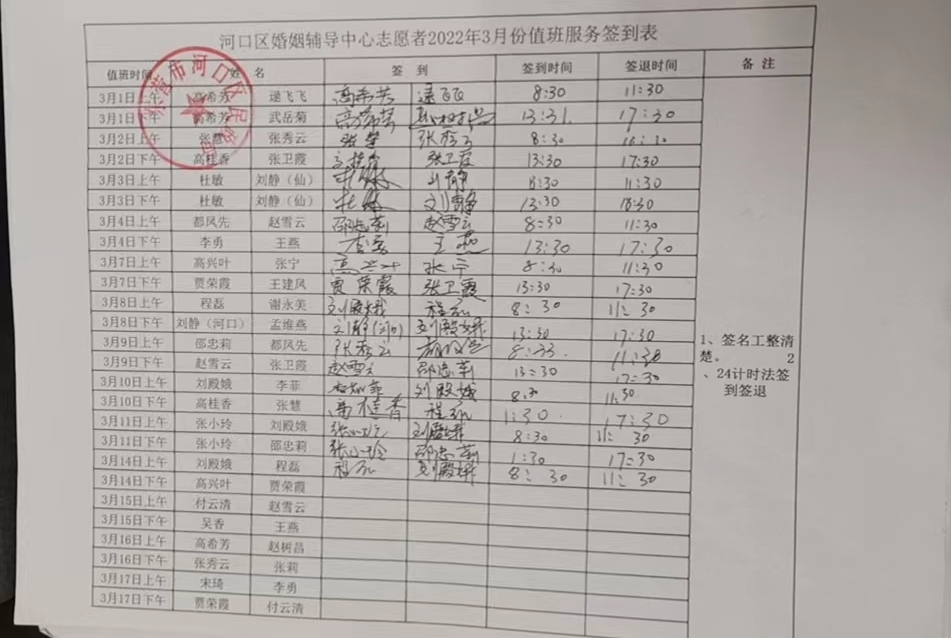 河口区婚姻辅导中心志愿者2022年3月份值班服务签到表
值班时间 姓 名 签 到 签到时间 签退时间 备 注
3月1日上午 高希芳 逯飞飞 高希芳 逯飞飞 8:30 11:30
3月1日下午 高希芳 武岳菊 高希芳 13:31 17:30
3月2日上午 张慧 张秀云 张慧 张秀云 8:30
3月2日下午 高桂香 张卫霞 高桂香 张卫霞 13:30 17:30
3月3日上午 杜敏 刘静（仙） 杜敏 刘静 8:30 11:30
3月3日下午 杜敏 刘静（仙） 杜敏 刘静 13:30
3月4日上午 都凤先 赵雪云 邵忠莉 赵雪云 8=30 11:30
3月4日下午 李勇 王燕 李勇 王燕 13:30 17:30
3月7日上午 高兴叶 张宁 高兴叶 张宁 8:30 11:30
3月7日下午 贾荣霞 王建凤 贾荣霞 张卫霞 13:30 17:30
3月8日上午 程磊 谢永美 刘殿娥 程磊 8:30 11:30
3月8日下午 刘静（河口） 孟维燕 刘静(河口) 刘殿娥 13:30 17:30
3月9日上午 邵忠莉 都凤先 张秀云 8:33. 11:30
3月9日下午 赵雪云 张卫霞 赵雪云 邵忠莉 13=30 17=30
3月10日上午 刘殿娥 李菲 刘殿娥 8:30 11:30
3月10日下午 高桂香 张慧 高桂香 程磊 1:30. 17:30
3月11日上午 张小玲 刘殿娥 张小玲 刘殿娥 8:30 11:30
3月11日下午 张小玲 邵忠莉 张小玲 邵忠莉 1:30 17=30
3月14日上午 刘殿娥 程磊 程磊 刘殿娥 8:30 11:30
3月14日下午 高兴叶 贾荣霞
3月15日上午 付云清 赵雪云
3月15日下午 吴香 王燕
3月16日上午 高希芳 赵树昌
3月16日下午 张秀云 张莉
3月17日上午 宋琦 李勇
3月17日下午 贾荣霞 付云清
1、签名工整清
楚。 2
、24计时法签
到签退